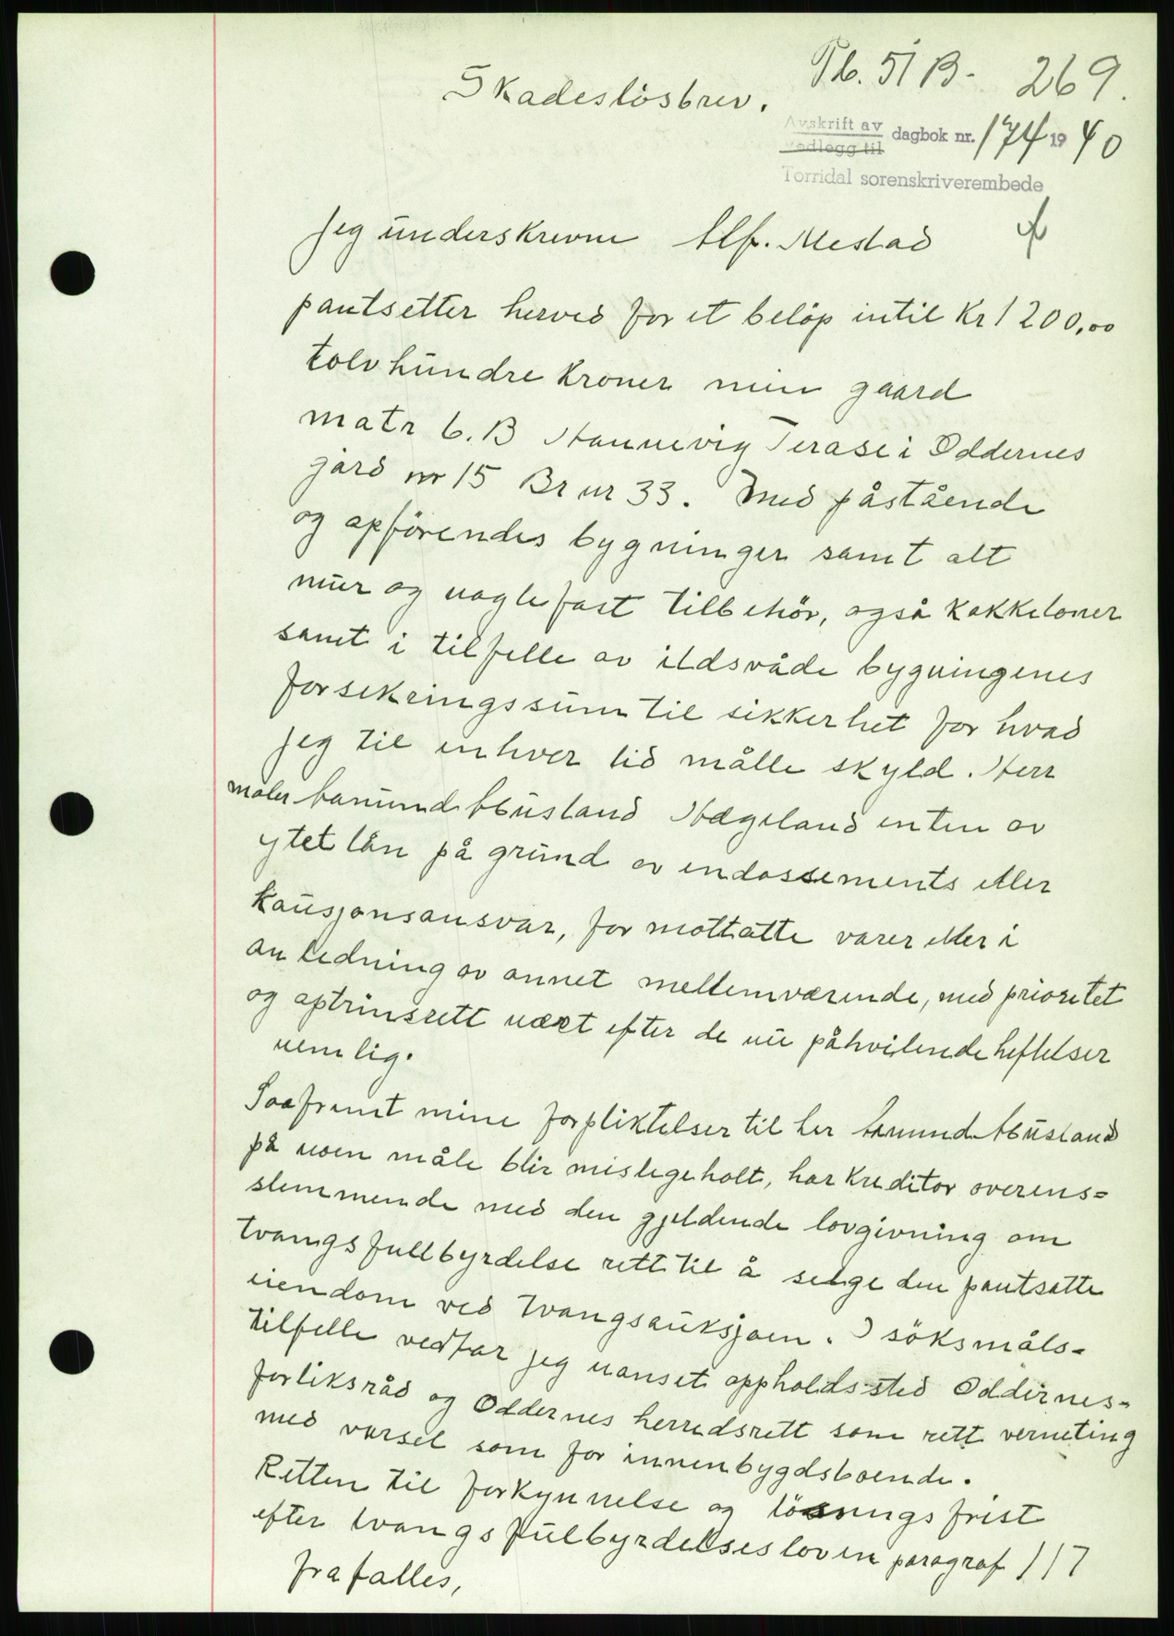 Pb. 51 B - 269.
Skadesløsbrev.
Avskrift av
Vedlegg til
dagbok nr. 174 1940
Torridal sorenskriverembede
Jeg underskrevne Alf. Mestad
pantsetter herved for et beløp intil Kr 1200,00
tolv hundre Kroner min gaard
matr 6.B Hannevig Terase i Oddernes
gård nr 15 Br nr 33. Med påstående
og opförendes bygninger samt alt
mur og naglefast tilbehör, også kakkeloner
samt i tilfelle av ildsvåde bygningenes
forsekringssum til sikkerhet for hvad
jeg til enhver tid måtte skyld. Herr
maler Aanund Abusland Hægeland enten av
ytet lån på grund av endossements eller
Kausjonsansvar, for mottatte varer eller i
anledning av annet mellemværende, med prioretet
og optrinsrett næst efter de nu påhvilende heftelser
nemlig.
Saafremt mine forpliktelser til her Aanund Abusland
på noen måte blir misligeholt, har Kreditor overens=
stemmende med den gjeldende lovgivning om
tvangsfullbyrdelse rett til å selge den pantsatte
eiendom ved tvangsauksjoen. I söksmåls-
tilfelle vedtar jeg uanset oppholdssted Oddernes-
forliksråd og Oddernes herredsrett som rett verneting
med varsel som for innenbygdsboende.
Retten til forkynnelse og lösningsfrist
efter tvangsfulbyrdelsesloven paragraf 117
frafalles,